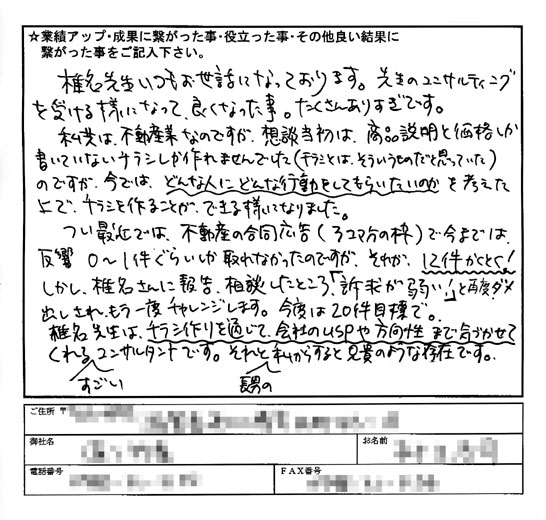 ☆業績アップ・成果に繋がった事・役立った事・その他良い結果に
繋がった事をご記入下さい。
椎名先生いつもお世話になっております。先生のコンサルティング
を受ける様になって、良くなった事。たくさんありすぎです。
私共は、不動産業なのですが、想談当初は、商品説明と価格しか
書いていないチラシしか作れませんでした(チラシとは、そういうものだと思っていた)
のですが、今では、どんな人にどんな行動をしてもらいたいのかを考えた
上で、チラシを作ることが、できる様になりました。
つい最近では、不動産の合同広告(3コマ分の枠)で今までは、
反響 0〜1件ぐらいしか取れなかったのですが、それが、12件かとく!
しかし、椎名さんに報告、相談したところ、「訴求が弱い!」と再度ダメ
出しされ、もう一度チャレンジします。今度は20件目標で。
椎名先生は、チラシ作りを通じて、会社のUSPや方向性まで気づかせて
くれるコンサルタントです。それと私からすると兄貴のような存在です。
すごい 長男の
ご住所 〒
御社名 お名前
電話番号 FAX番号